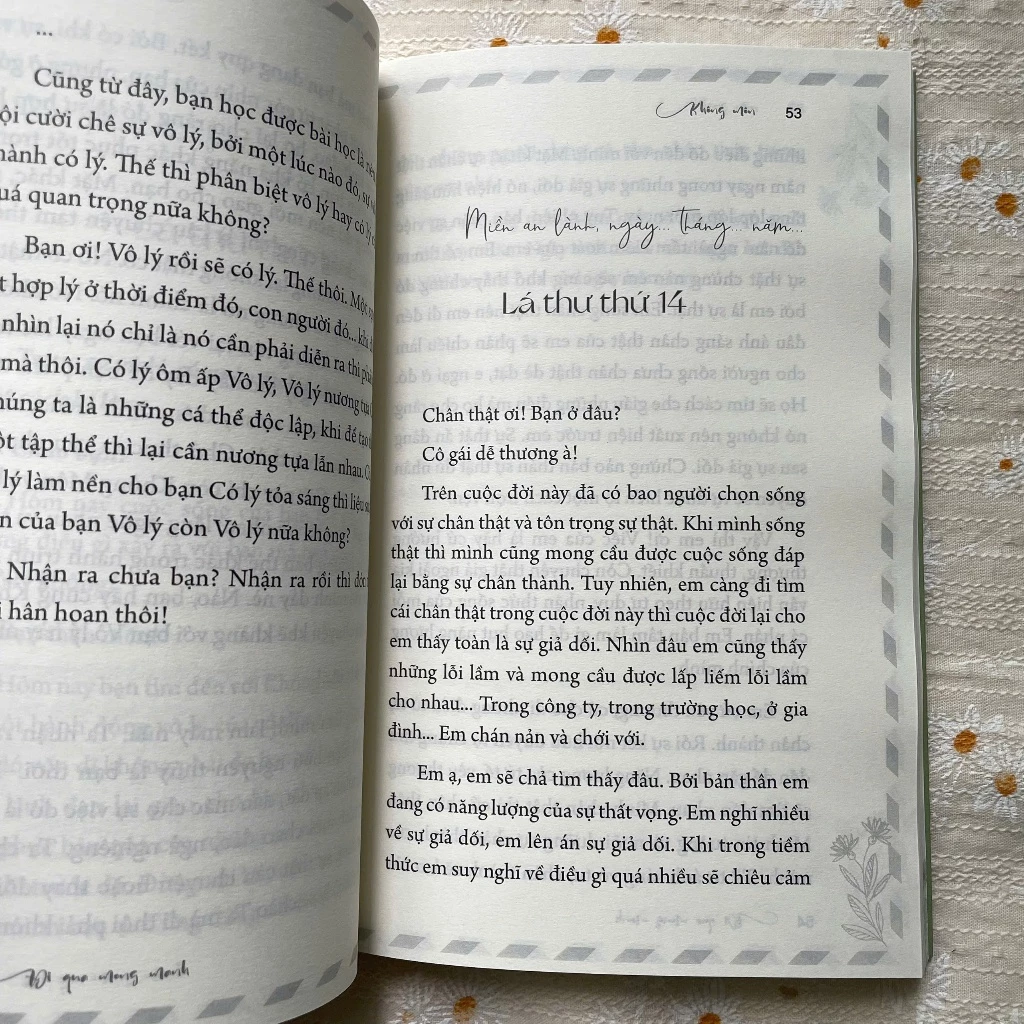 ...
Cũng từ đây, bạn học được bài học là nên
ội cười chê sự vô lý, bởi một lúc nào đó, sự
hành có lý. Thế thì phân biệt vô lý hay có lý
uá quan trọng nữa không?
Bạn ơi! Vô lý rồi sẽ có lý. Thế thôi. Một
t hợp lý ở thời điểm đó, con người đó...
nhìn lại nó chỉ là nó cần phải diễn ra thì
mà thôi. Có lý ôm ấp Vô lý, Vô lý nương tựa
húng ta là những cá thể độc lập, khi để tạo
ột tập thể thì lại cần nương tựa lẫn nhau.
lý làm nền cho bạn Có lý tỏa sáng thì liệu
n của bạn Vô lý còn Vô lý nữa không?
Nhận ra chưa bạn? Nhận ra rồi thì
i hân hoan thôi!
Đi qua mong manh
Không môn 53
Miền an lành, ngày... tháng... năm...
Lá thư thứ 14
Chân thật ơi! Bạn ở đâu?
Cô gái dễ thương à!
Trên cuộc đời này đã có bao người chọn sống
với sự chân thật và tôn trọng sự thật. Khi mình sống
thật thì mình cũng mong cầu được cuộc sống đáp
lại bằng sự chân thành. Tuy nhiên, em càng đi tìm
cái chân thật trong cuộc đời này thì cuộc đời lại cho
em thấy toàn là sự giả dối. Nhìn đâu em cũng thấy
những lỗi lầm và mong cầu được lấp liếm lỗi lầm
cho nhau... Trong công ty, trong trường học, ở gia
đình... Em chán nản và chới với.
Em ạ, em sẽ chả tìm thấy đâu. Bởi bản thân em
đang có năng lượng của sự thất vọng. Em nghĩ nhiều
về sự giả dối, em lên án sự giả dối. Khi trong tiềm
thức em suy nghĩ về điều gì quá nhiều sẽ chiêu cảm